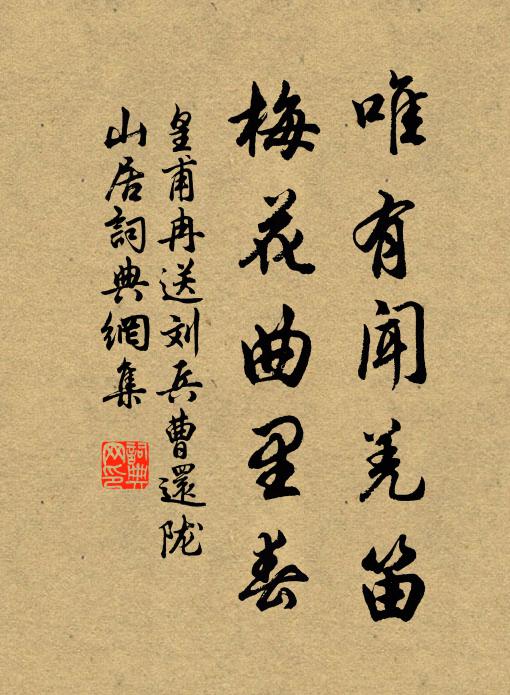 唯有闻羌笛
梅花曲里春
皇甫冉送刘兵曹還陇
山居詞典網集
詞典网印